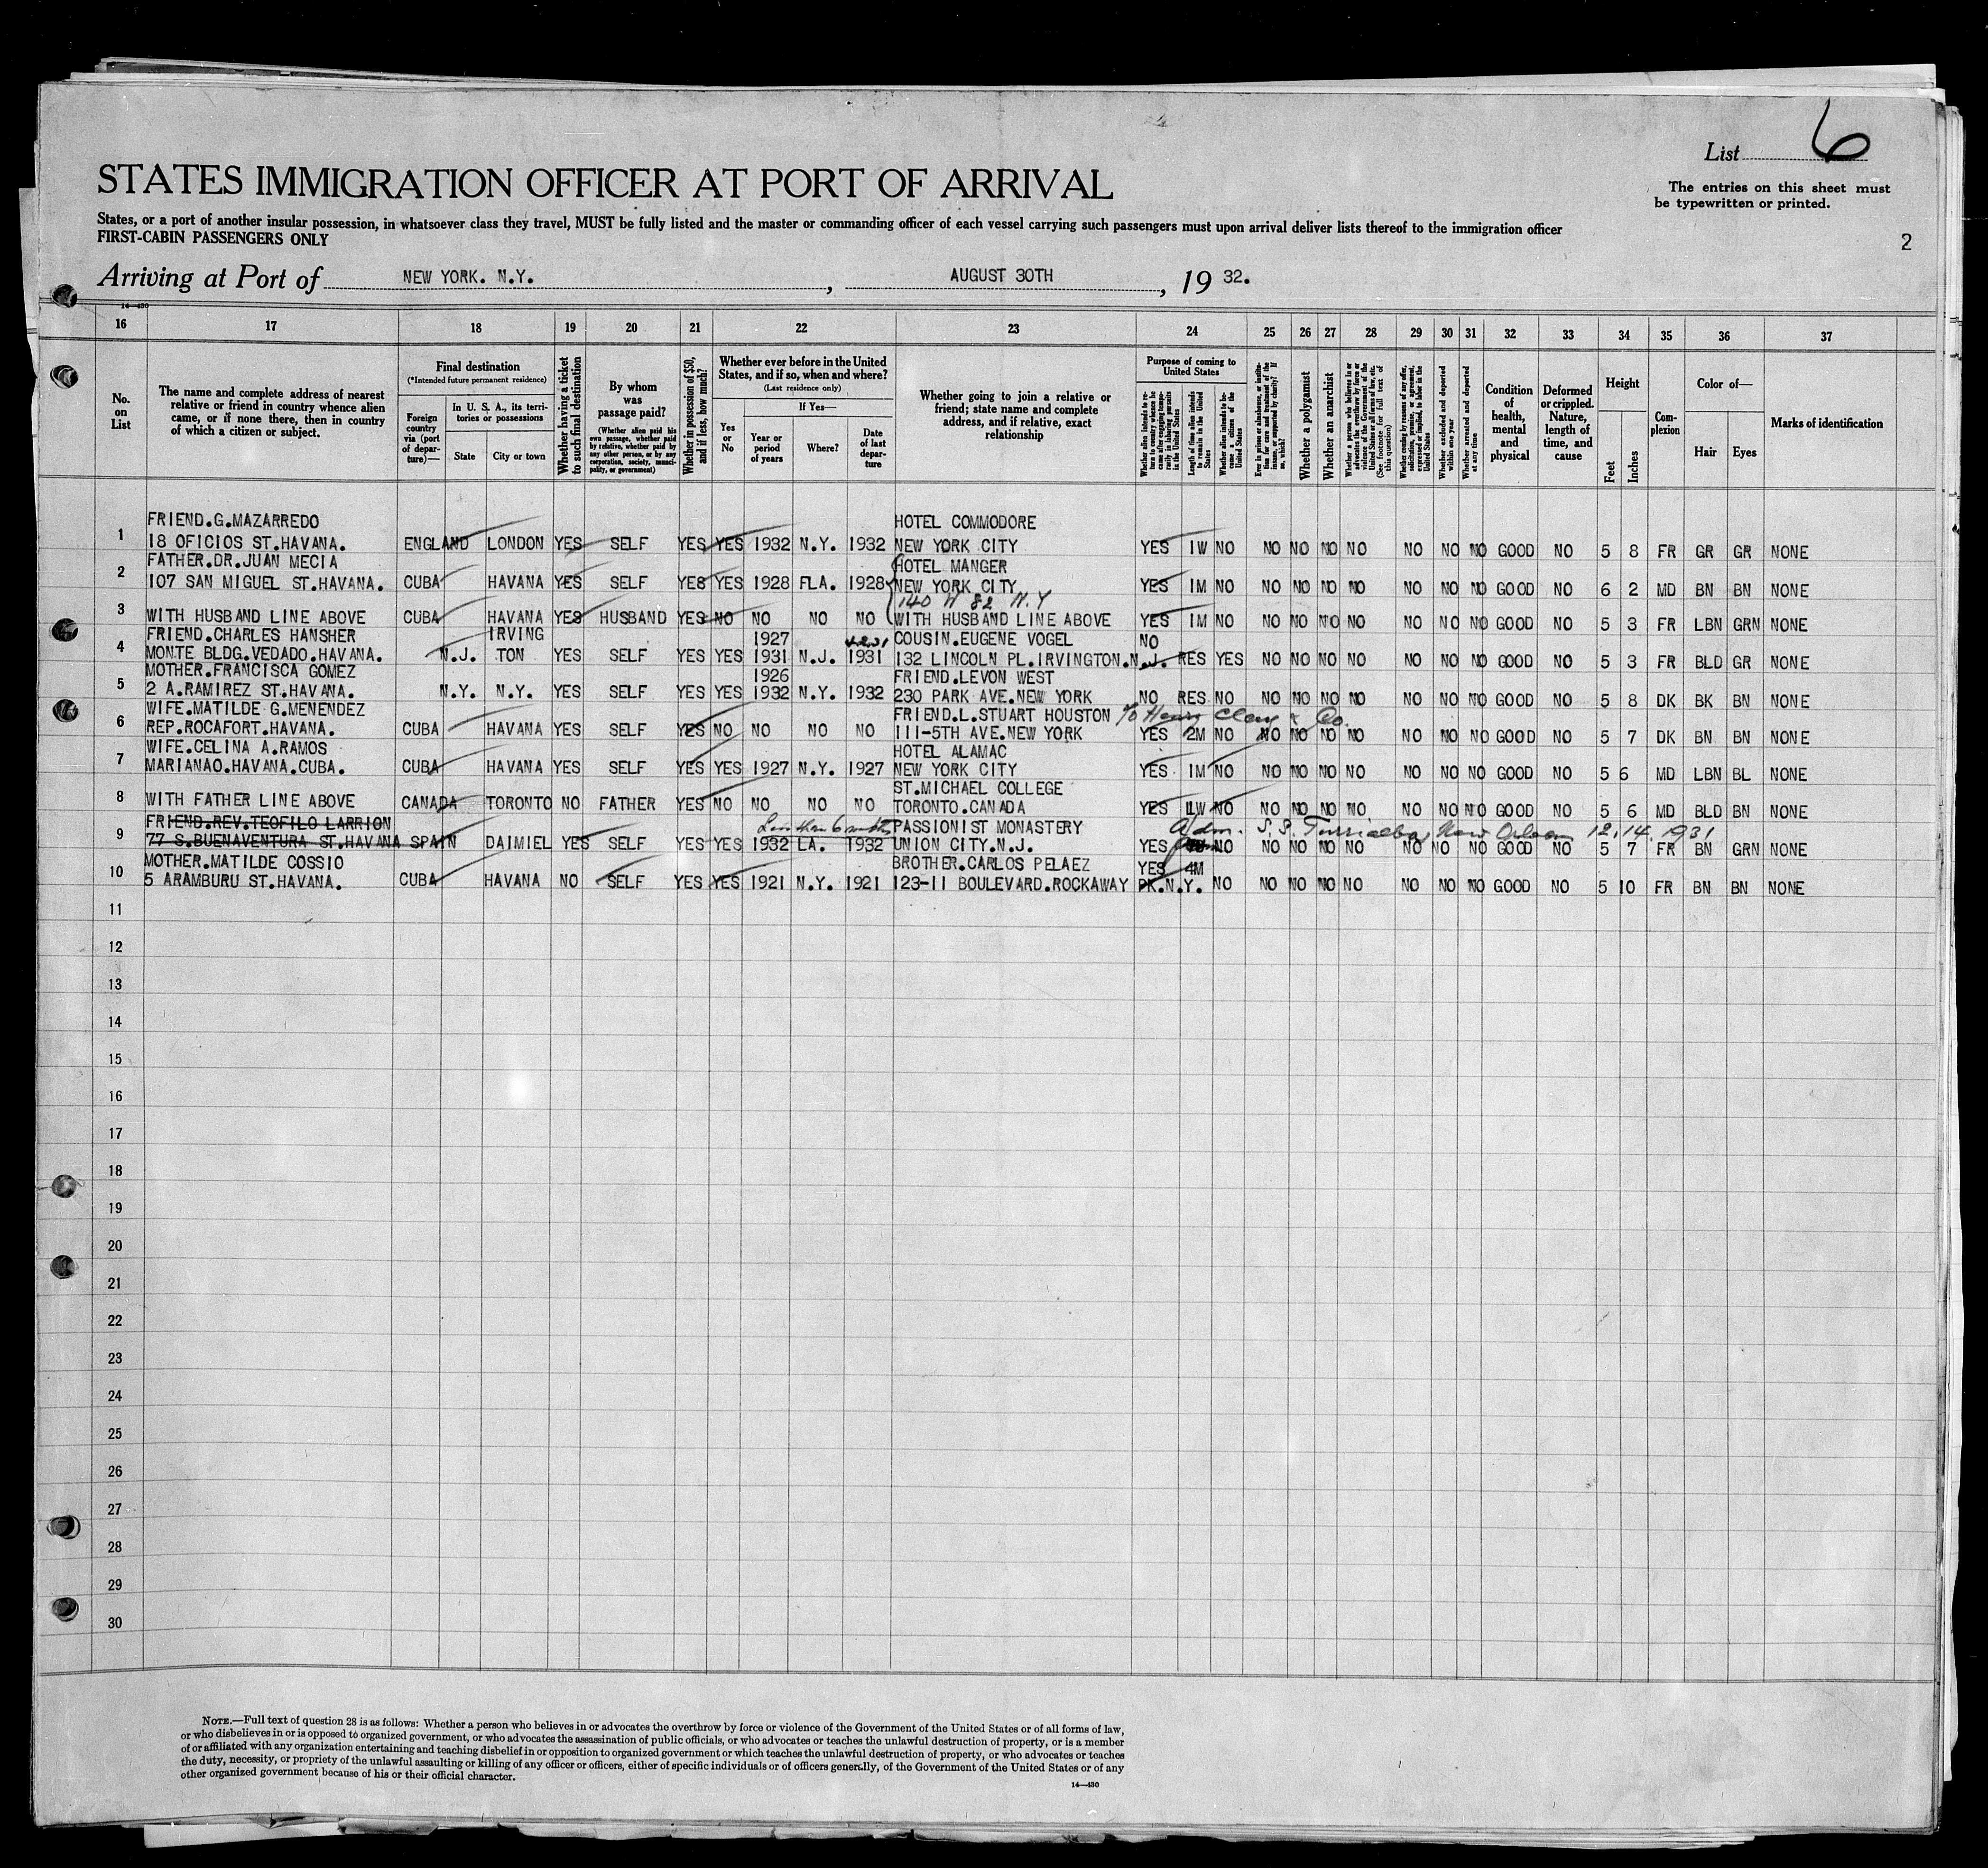 List 6
STATES IMMIGRATION OFFICER AT PORT OF ARRIVAL
The entries on this sheet must
be typewritten or printed.
States, or a port of another insular possession, in whatsoever class they travel, MUST be fully listed and the master or commanding officer of each vessel carrying such passengers must upon arrival deliver lists thereof to the immigration officer
FIRST-CABIN PASSENGERS ONLY
2
Arriving at Port of NEW YORK. N.Y. , AUGUST 30TH , 19 32.
14—430
16 17 18 19 20 21 22 23 24 25 26 27 28 29 30 31 32 33 34 35 36 37
No. on List
The name and complete address of nearest relative or friend in country whence alien came, or if none there, then in country of which a citizen or subject.
Final destination
(*Intended future permanent residence)
Foreign country via (port of departure)—
In U. S. A., its territories or possessions
State
City or town
Whether having a ticket to such final destination
By whom was passage paid?
(Whether alien paid his own passage, whether paid by relative, whether paid by any other person, or by any corporation, society, municipality, or government)
Whether in possession of $50, and if less, how much?
Whether ever before in the United States, and if so, when and where?
(Last residence only)
If Yes—
Yes or No
Year or period of years
Where?
Date of last departure
Whether going to join a relative or friend; state name and complete address, and if relative, exact relationship
Purpose of coming to United States
Whether alien intends to return to country whence he came after engaging temporarily in laboring pursuits in the United States
Length of time alien intends to remain in the United States
Whether alien intends to become a citizen of the United States
Ever in prison or almshouse, or institution for care and treatment of the insane, or supported by charity? If so, which?
Whether a polygamist
Whether an anarchist
Whether a person who believes in or advocates the overthrow by force or violence of the Government of the United States or all forms of law, etc. (See footnote for full text of this question)
Whether coming by reason of any offer, solicitation, promise, or agreement, expressed or implied, to labor in the United States
Whether excluded and deported within one year
Whether arrested and deported at any time
Condition of health, mental and physical
Deformed or crippled. Nature, length of time, and cause
Height
Feet
Inches
Complexion
Color of—
Hair
Eyes
Marks of identification
FRIEND.G.MAZARREDO HOTEL COMMODORE
1 18 OFICIOS ST.HAVANA. ENGLAND LONDON YES SELF YES YES 1932 N.Y. 1932 NEW YORK CITY YES 1W NO NO NO NO NO NO NO NO GOOD NO 5 8 FR GR GR NONE
FATHER.DR.JUAN MECIA HOTEL MANGER
2 107 SAN MIGUEL ST.HAVANA. CUBA HAVANA YES SELF YES YES 1928 FLA. 1928 NEW YORK CITY YES 1M NO NO NO NO NO NO NO NO GOOD NO 6 2 MD BN BN NONE
140 W 82 N.Y
3 WITH HUSBAND LINE ABOVE CUBA HAVANA YES HUSBAND YES NO NO NO NO WITH HUSBAND LINE ABOVE YES 1M NO NO NO NO NO NO NO NO GOOD NO 5 3 FR LBN GRN NONE
FRIEND.CHARLES HANSHER IRVING 1927 COUSIN.EUGENE VOGEL NO
4 MONTE BLDG.VEDADO.HAVANA. N.J. TON YES SELF YES YES 1931 N.J. 1931 132 LINCOLN PL.IRVINGTON.N.J. RES YES NO NO NO NO NO NO NO GOOD NO 5 3 FR BLD GR NONE
MOTHER.FRANCISCA GOMEZ 1926 FRIEND.LEVON WEST
5 2 A.RAMIREZ ST.HAVANA. N.Y. N.Y. YES SELF YES YES 1932 N.Y. 1932 230 PARK AVE.NEW YORK NO RES NO NO NO NO NO NO NO NO GOOD NO 5 8 DK BK BN NONE
WIFE.MATILDE G.MENENDEZ FRIEND.L.STUART HOUSTON c/o Henry Clay & Co.
6 REP.ROCAFORT.HAVANA. CUBA HAVANA YES SELF YES NO NO NO NO 111-5TH AVE.NEW YORK YES 2M NO NO NO NO NO NO NO NO GOOD NO 5 7 DK BN BN NONE
WIFE.CELINA A.RAMOS HOTEL ALAMAC
7 MARIANAO.HAVANA.CUBA. CUBA HAVANA YES SELF YES YES 1927 N.Y. 1927 NEW YORK CITY YES 1M NO NO NO NO NO NO NO NO GOOD NO 5 6 MD LBN BL NONE
ST.MICHAEL COLLEGE
8 WITH FATHER LINE ABOVE CANADA TORONTO NO FATHER YES NO NO NO NO TORONTO.CANADA YES 1W NO NO NO NO NO NO NO NO GOOD NO 5 6 MD BLD BN NONE
FRIEND.REV.TEOFILO LARRION Less than 6 months PASSIONIST MONASTERY Adm. S.S. Turrialba, New Orleans 12.14.1931
9 77 S.BUENAVENTURA ST.HAVANA SPAIN DAIMIEL YES SELF YES YES 1932 LA. 1932 UNION CITY.N.J. YES NO NO NO NO NO NO NO NO GOOD NO 5 7 FR BN GRN NONE
MOTHER.MATILDE COSSIO BROTHER.CARLOS PELAEZ YES 4M
10 5 ARAMBURU ST.HAVANA. CUBA HAVANA NO SELF YES YES 1921 N.Y. 1921 123-11 BOULEVARD.ROCKAWAY PK.N.Y. NO NO NO NO NO NO NO NO GOOD NO 5 10 FR BN BN NONE
11
12
13
14
15
16
17
18
19
20
21
22
23
24
25
26
27
28
29
30
NOTE.—Full text of question 28 is as follows: Whether a person who believes in or advocates the overthrow by force or violence of the Government of the United States or of all forms of law,
or who disbelieves in or is opposed to organized government, or who advocates the assassination of public officials, or who advocates or teaches the unlawful destruction of property, or is a member
of or affiliated with any organization entertaining and teaching disbelief in or opposition to organized government or which teaches the unlawful destruction of property, or who advocates or teaches
the duty, necessity, or propriety of the unlawful assaulting or killing of any officer or officers, either of specific individuals or of officers generally, of the Government of the United States or of any
other organized government because of his or their official character.
14—430